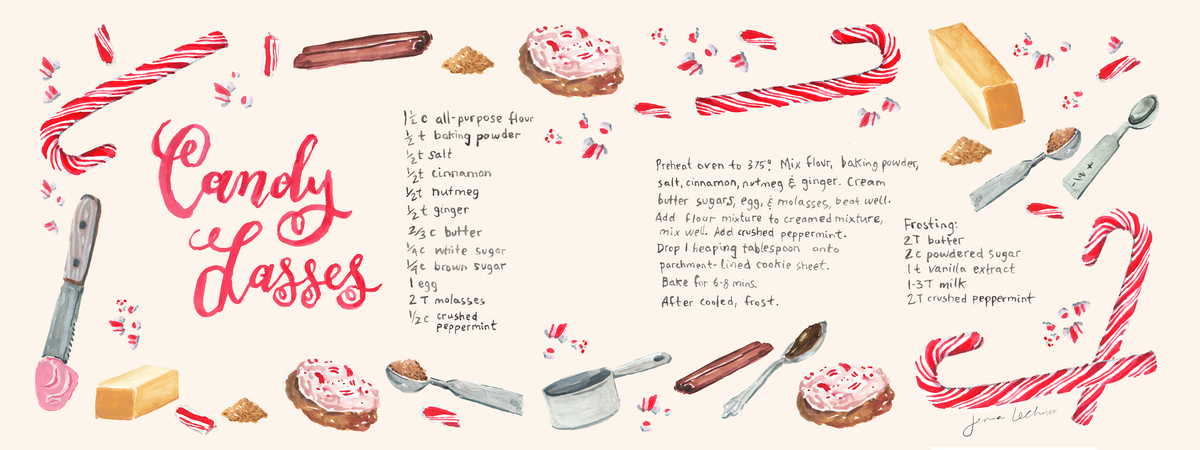 Candy
Lasses
1 1/2 c all-purpose flour
1/2 t baking powder
1/2 t salt
1/2 t cinnamon
1/2 t nutmeg
1/2 t ginger
2/3 c butter
1/4 c white sugar
1/4 c brown sugar
1 egg
2 T molasses
1/2 c crushed
peppermint
Preheat oven to 375° Mix flour, baking powder,
salt, cinnamon, nutmeg & ginger. Cream
butter sugars, egg, & molasses, beat well.
Add flour mixture to creamed mixture,
mix well. Add crushed peppermint.
Drop 1 heaping tablespoon onto
parchment-lined cookie sheet.
Bake for 6-8 mins.
After cooled, frost.
Frosting:
2T butter
2c powdered sugar
1t vanilla extract
1-3T milk
2T crushed peppermint
Jenna Lechner